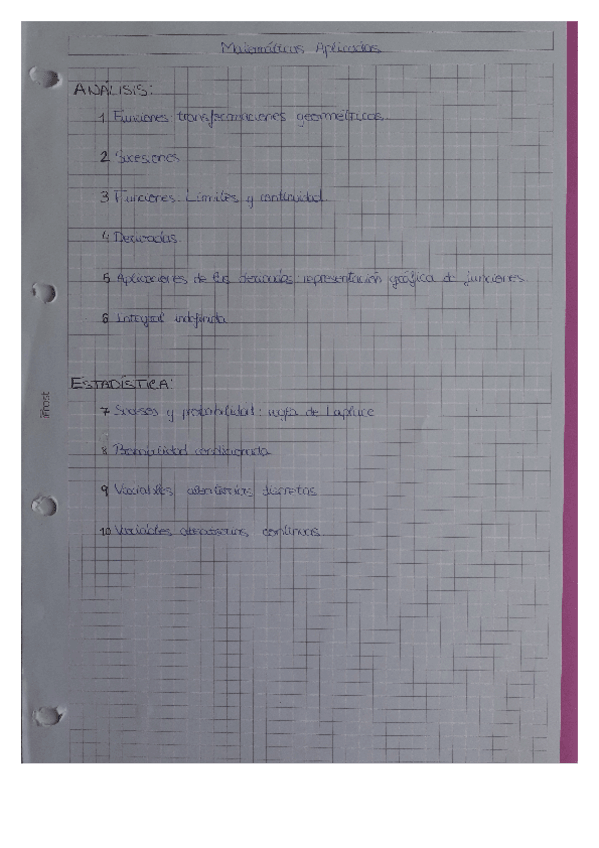 Matemáticas Aplicadas
ANÁLISIS:
1 Funciones: transformaciones geométricas
2 Sucesiones
3 Funciones. Límites y continuidad
4 Derivadas
5 Aplicaciones de las derivadas: representación gráfica de funciones
6 Integral indefinida
ESTADÍSTICA:
7 Sucesos y probabilidad: regla de Laplace
8 Probabilidad condicionada
9 Variables aleatorias discretas
10 Variables aleatorias continuas